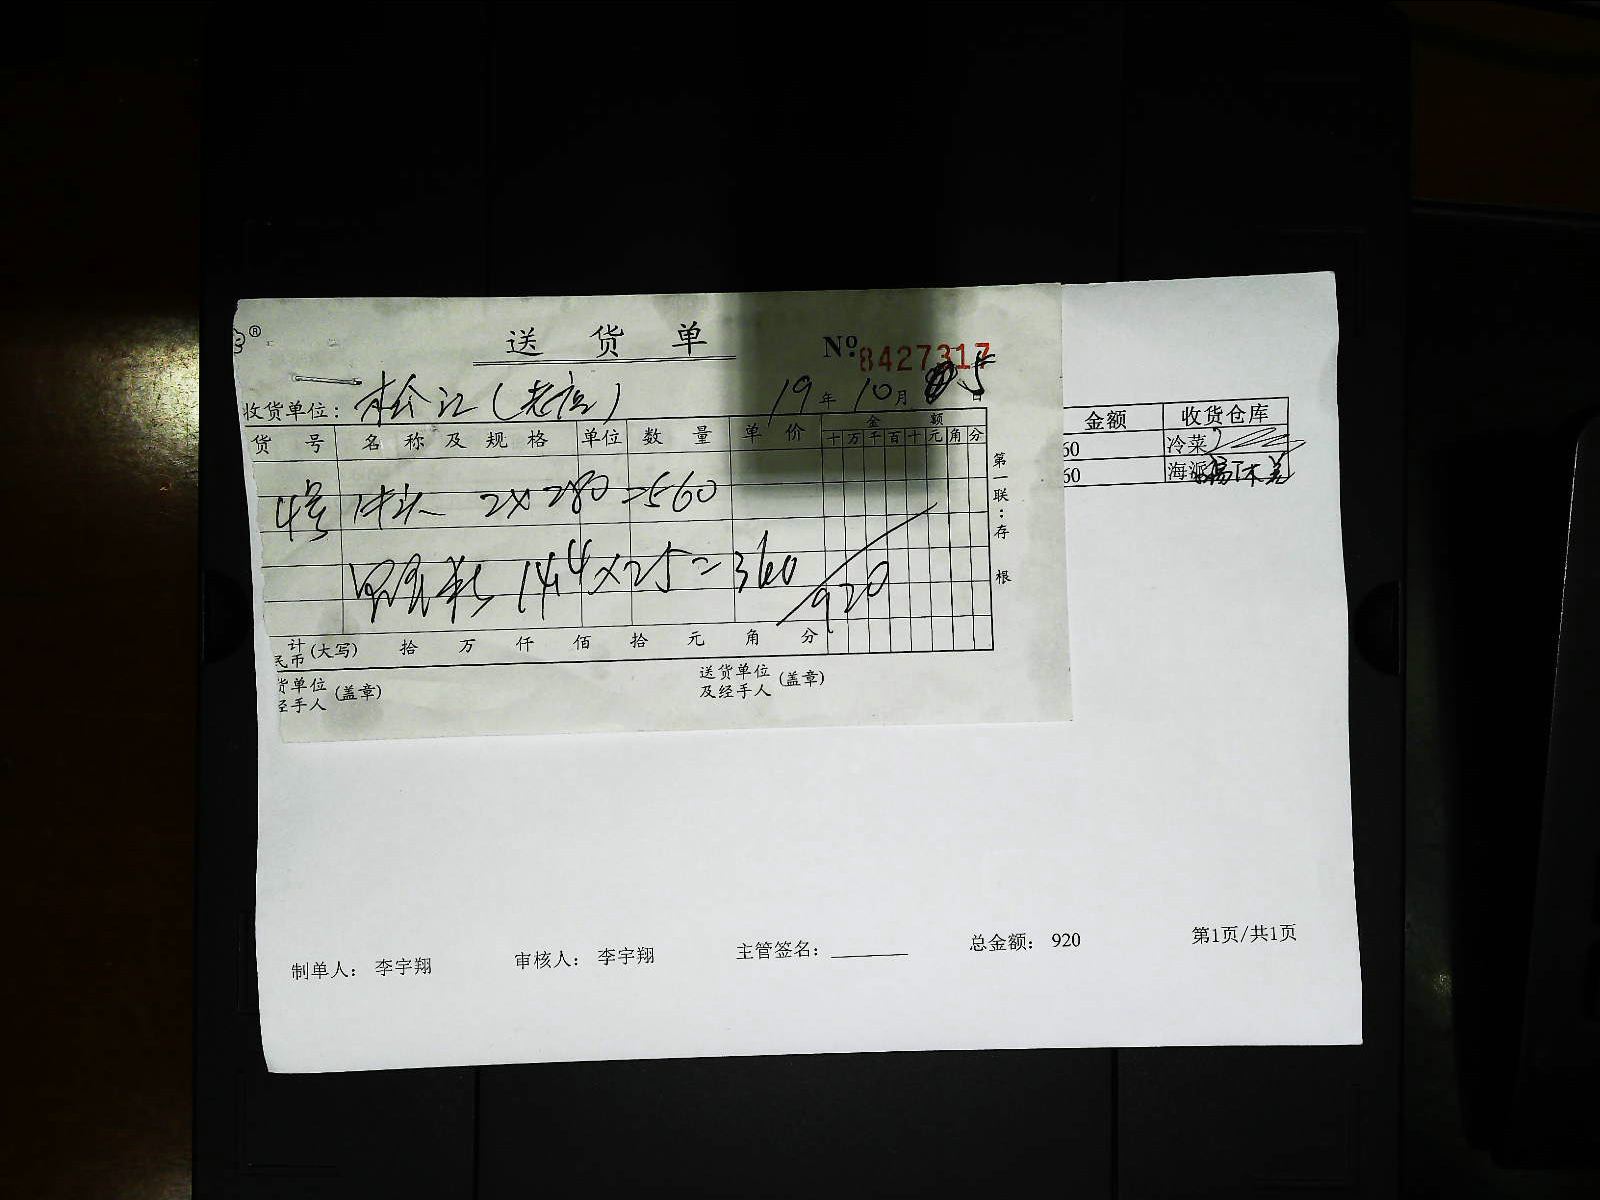 送货单 № 8427317
收货单位: (老店) 19年10月5日
货号 名称及规格 单位 数量 单价 金额
十万千百十元角分
4号 2×280=560
14.4×25=360
920
计 (大写) 拾 万 仟 佰 拾 元 角 分
民币
货单位 (盖章) 送货单位 (盖章)
经手人 及经手人
第一联:存根
金额 收货仓库
60 冷菜
60 海派
制单人: 李宇翔 审核人: 李宇翔 主管签名: 总金额: 920 第1页/共1页